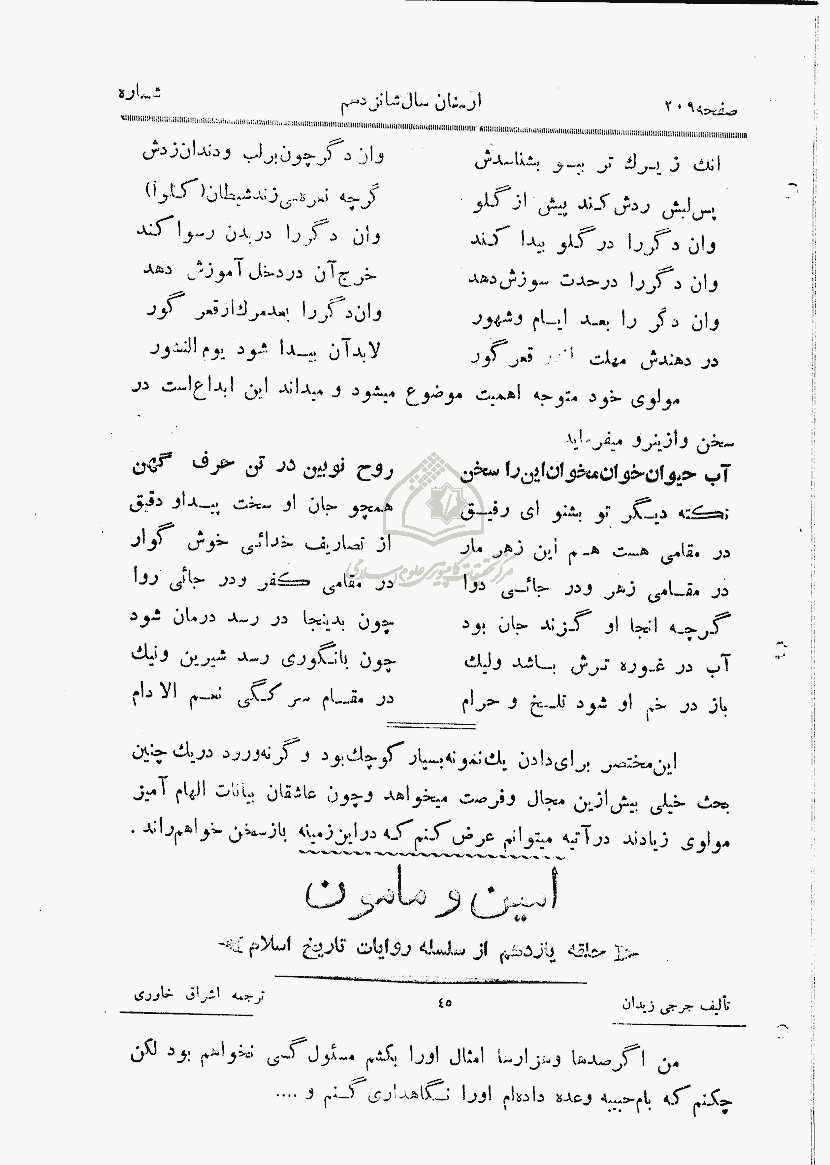 صفحه ۲۰۹ ارمغان سال شانزدهم شماره
انك ز یرك تر ببو بشناسدش وان دگر چون برلب و دندان زدش
پس لبش ردش کند پیش از گلو گرچه نعره می زند شیطان (کلوا)
وان دگررا در گلو پیدا کند وان دگررا در بدن رسوا کند
وان دگررا در حدث سوزش دهد خرج آن در دخل آموزش دهد
وان دگر را بعد ایام و شهور وان دگررا بعد مرك از قعر گور
در دهندش مهلت قعر گور لابد آن پیدا شود یوم النشور
مولوی خود متوجه اهمیت موضوع میشود و میداند این ابداع است در
سخن و ازینرو میفرماید
آب حیوان خوان مخوان این را سخن روح نوبین در تن حرف کهن
نکته دیگر تو بشنو ای رفیق همچو جان او سخت پیدا و دقیق
در مقامی هست هم این زهر مار از تصاریف خدائی خوش گوار
در مقامی زهر ودر جائی دوا در مقامی کفر ودر جائی روا
گرچه انجا او گزند جان بود چون بدینجا در رسد درمان شود
آب در غوره ترش باشد ولیك چون بانگوری رسد شیرین ونیك
باز در خم او شود تلخ و حرام در مقام سرکگی نعم الادام
این مختصر برای دادن یك نمونه بسیار کوچك بود و گرنه ورود در یك چنین
بحث خیلی بیش ازین مجال وفرصت میخواهد وچون عاشقان بیانات الهام آمیز
مولوی زیادند در آتیه میتوانم عرض کنم که در این زمینه باز سخن خواهم راند .
امین و مامون
حلقه یازدهم از سلسله روایات تاریخ اسلام
تألیف جرجی زیدان ٤٥ ترجمه اشراق خاوری
من اگر صدها و هزارها امثال اورا بکشم مسئول کسی نخواهم بود لکن
چکنم که بام حبیبه وعده داده ام اورا نگاهداری کنم و ....
مرکز تحقیقات کامپیوتری علوم اسلامی